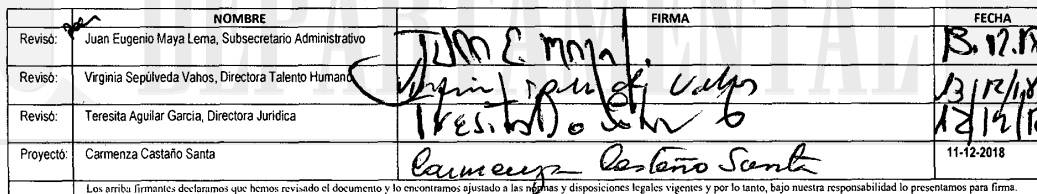 DEPARTAMENTAL
NOMBRE FIRMA FECHA
Revisó: Juan Eugenio Maya Lema, Subsecretario Administrativo Juan E Maya 13.12.18
Revisó: Virginia Sepúlveda Vahos, Directora Talento Humano Virginia Sepulveda Vahos 13/12/18
Revisó: Teresita Aguilar Garcia, Directora Jurídica
Proyectó: Carmenza Castaño Santa Carmenza Castaño Santa 11-12-2018
Los arriba firmantes declaramos que hemos revisado el documento y lo encontramos ajustado a las normas y disposiciones legales vigentes y por lo tanto, bajo nuestra responsabilidad lo presentamos para firma.